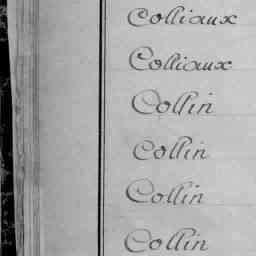 Colliaux
Colliaux
Collin
Collin
Collin
Collin